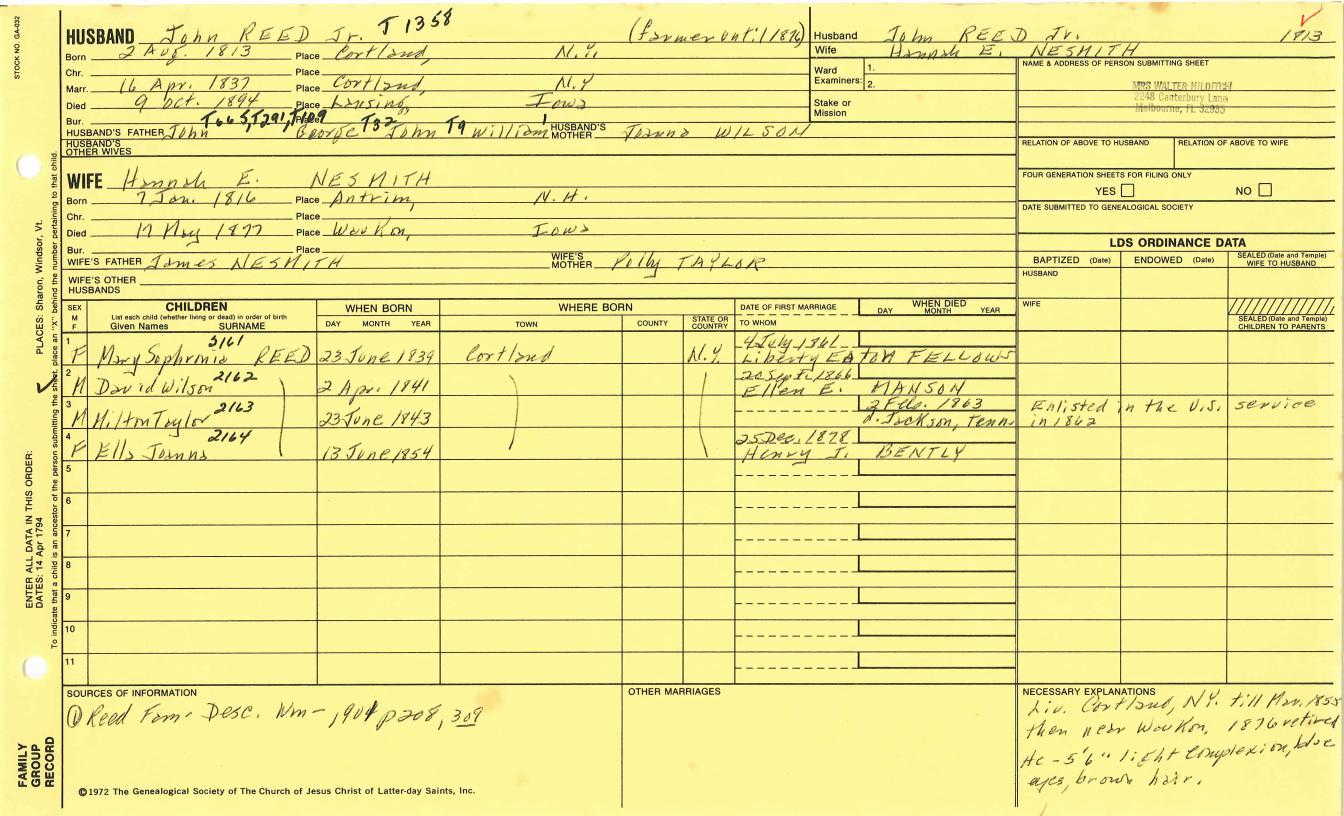 STOCK NO. GA-032
HUSBAND John REED Jr. T 1358 (farmer until 1876)
Born 2 Aug. 1813 Place Cortland, N.Y.
Chr. Place
Marr. 16 Apr. 1837 Place Cortland, N.Y
Died 9 Oct. 1894 Place Lansing, Iowa
Bur. Place
T665, T291, T109 T32 T9 1
HUSBAND'S FATHER John George John William HUSBAND'S MOTHER Joanna WILSON
HUSBAND'S OTHER WIVES
WIFE Hannah E. NESMITH
Born 7 Jan. 1816 Place Antrim, N.H.
Chr. Place
Died 17 May 1877 Place WauKon, Iowa
Bur. Place
WIFE'S FATHER James NESMITH WIFE'S MOTHER Polly TAYLOR
WIFE'S OTHER HUSBANDS
Husband John REED Jr. 1813
Wife Hannah E. NESMITH
Ward Examiners: 1. 2.
Stake or Mission
NAME & ADDRESS OF PERSON SUBMITTING SHEET
MRS WALTER
2248 Canterbury Lane
Melbourne, FL 32935
RELATION OF ABOVE TO HUSBAND RELATION OF ABOVE TO WIFE
FOUR GENERATION SHEETS FOR FILING ONLY
YES NO
DATE SUBMITTED TO GENEALOGICAL SOCIETY
LDS ORDINANCE DATA
BAPTIZED (Date) ENDOWED (Date) SEALED (Date and Temple) WIFE TO HUSBAND
HUSBAND
WIFE
SEALED (Date and Temple) CHILDREN TO PARENTS
SEX M F CHILDREN List each child (whether living or dead) in order of birth Given Names SURNAME
WHEN BORN DAY MONTH YEAR
WHERE BORN TOWN COUNTY STATE OR COUNTRY
DATE OF FIRST MARRIAGE TO WHOM
WHEN DIED DAY MONTH YEAR
1 F Mary Sophronia REED 2161 23 June 1839 Cortland N.Y. 4 July 1861 Liberty EATON FELLOWS
2 M David Wilson 2162 2 Apr. 1841 20 Sept. 1866 Ellen E. MANSON
3 M Milton Taylor 2163 23 June 1843 2 Feb. 1863 d. Jackson, Tenn. Enlisted in the U.S. service in 1862
4 F Ella Joanna 2164 13 June 1854 25 Dec. 1878 Henry J. BENTLY
5
6
7
8
9
10
11
SOURCES OF INFORMATION
① Reed Fam- Desc. Wm- 1901 p208, 309
OTHER MARRIAGES
NECESSARY EXPLANATIONS
Liv. Cortland, NY. till Mar. 1855
then near WauKon, 1876 retired
He - 5'6" light complexion, blue
eyes, brown hair.
©1972 The Genealogical Society of The Church of Jesus Christ of Latter-day Saints, Inc.
FAMILY GROUP RECORD
ENTER ALL DATA IN THIS ORDER:
DATES: 14 Apr 1794 PLACES: Sharon, Windsor, Vt.
To indicate that a child is an ancestor of the person submitting the sheet, place an "X" behind the number pertaining to that child.